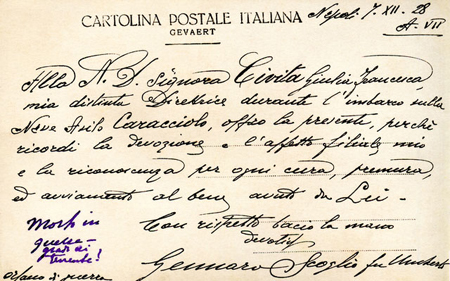 CARTOLINA POSTALE ITALIANA
GEVAERT
Napoli 7. XII - 28
A - VII
Alla N. D. Signora Civita Giulia Francesca,
mia distinta Direttrice durante l'imbarco sulla
Nave Asilo Caracciolo, offro la presente, perchè
ricordi la devozione e l'affetto filiale mio
e la riconoscenza per ogni cura, premura,
ed avviamento al bene avuto da Lei -
Con rispetto bacio la mano
devotis
Gennaro Scoglio fu Umberto
Morto in
guerra -
grado di
tenente!
orfano di guerra